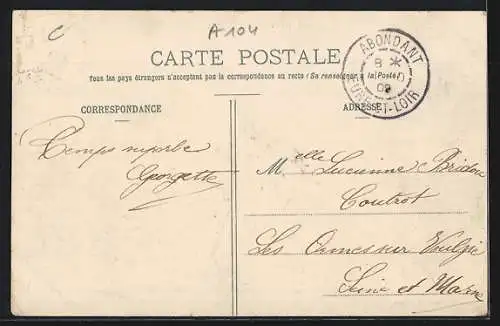 C
A 104
CARTE POSTALE
Tous les pays étrangers n'acceptent pas la correspondance au recto (Se renseigner à la Poste)
ABONDANT
8 *
09
EURE-ET-LOIR
CORRESPONDANCE
ADRESSE
Temps superbe
Georgette
Melle Lucienne
Coutrot
Les Ormes sur Voulzie
Seine et Marne